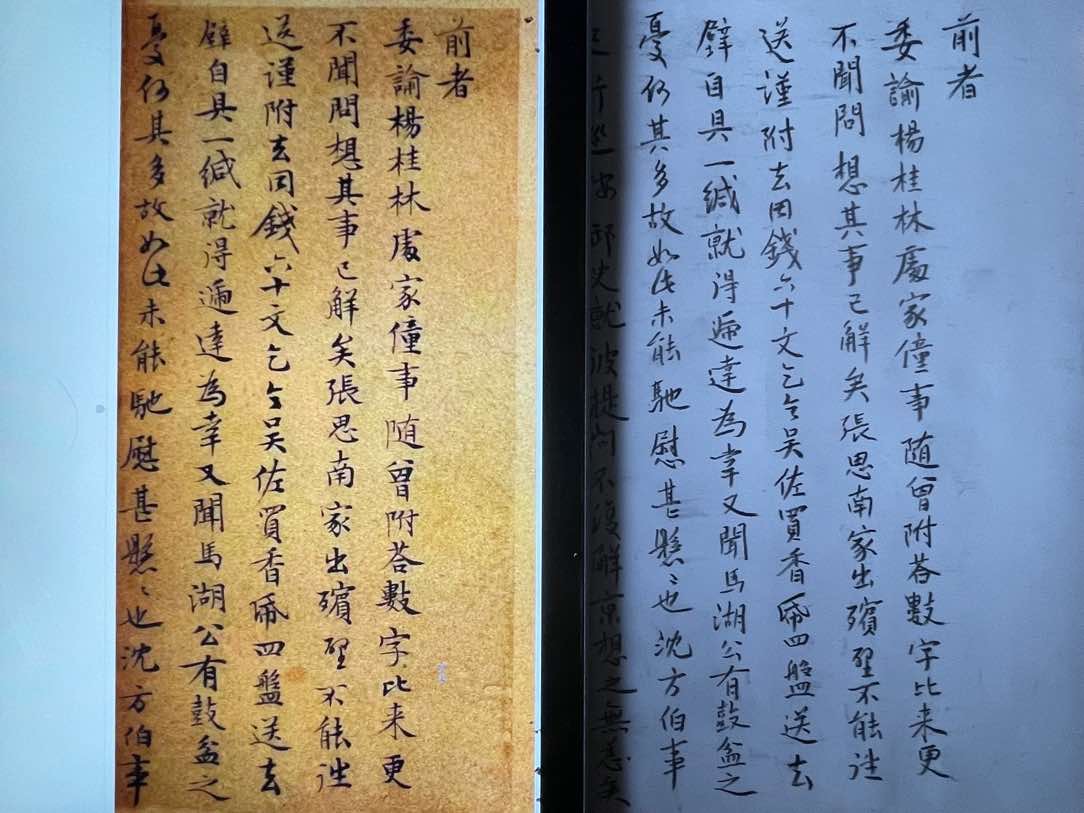 前者
委諭楊桂林處家僮事随曾附荅數字比来更
不聞問想其事已解矣張思南家出殯聖不能往
送謹附去因錢六十文乞令吴佐買香帋四盤送去
聟自具一緘就得遞達為幸又聞馬湖公有鼓盆之
憂何其多故如此未能馳慰甚懸〻也沈方伯事
前者
委諭楊桂林處家僮事随曾附荅數字比来更
不聞問想其事已解矣張思南家出殯聖不能往
送謹附去因錢六十文乞令吴佐買香帋四盤送去
聟自具一緘就得遞達為幸又聞馬湖公有鼓盆之
憂何其多故如此未能馳慰甚懸〻也沈方伯事
就彼提問不復解京想之無恙矣